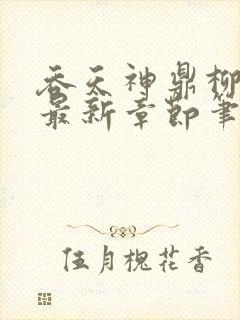 吞天神鼎柳
最新章节笔
伍月槐花香